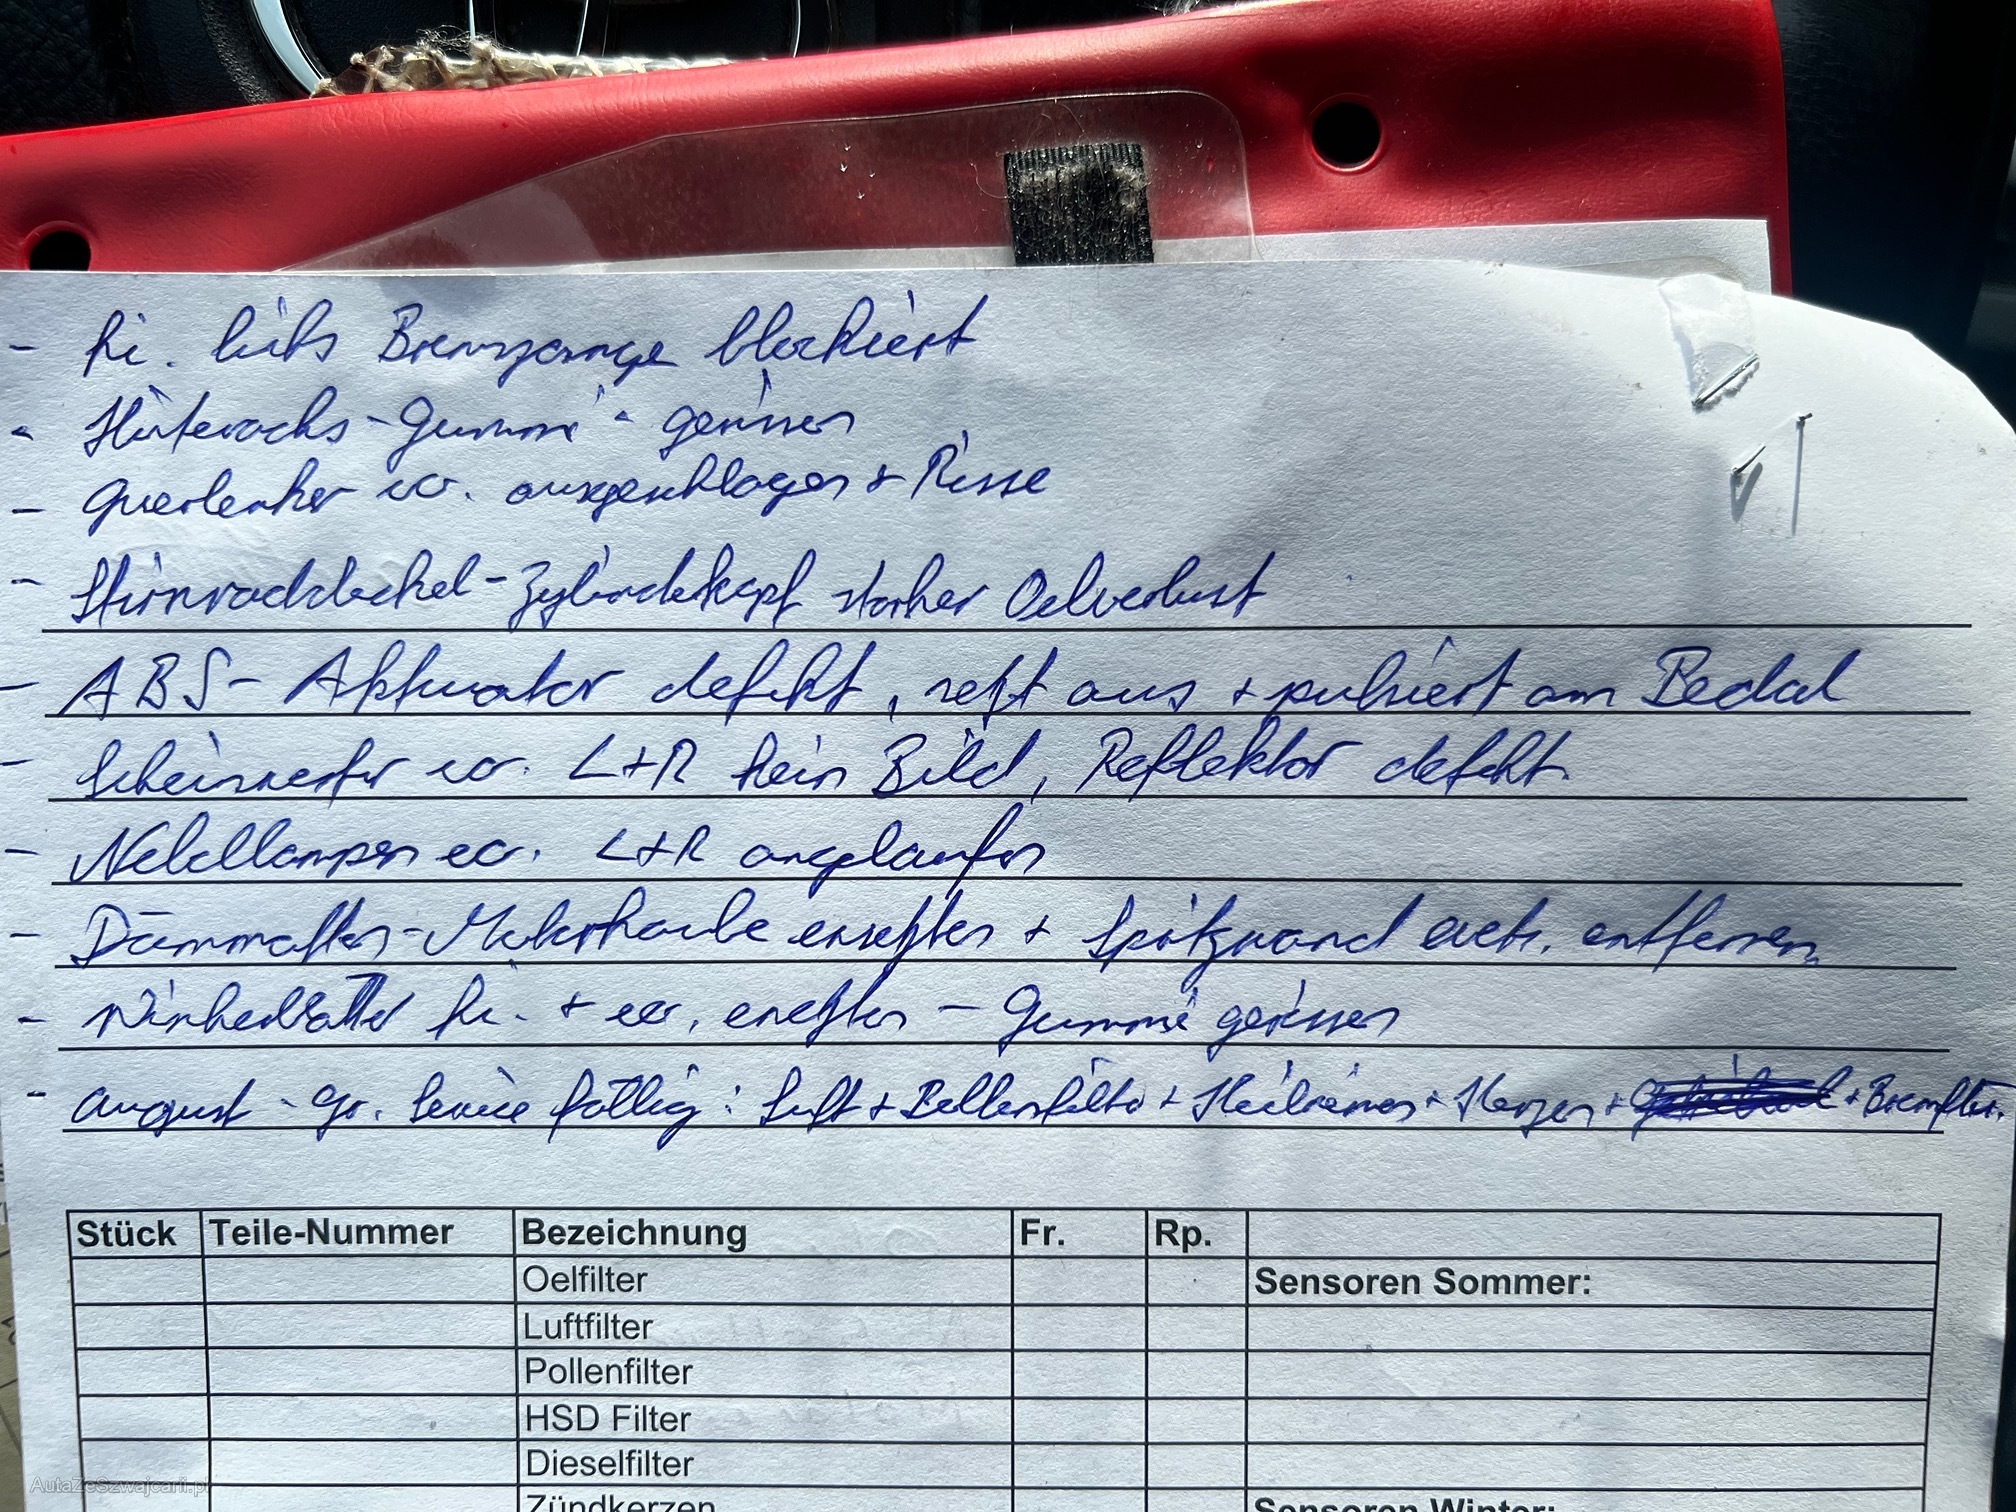 - hi. links Bremszange blockiert
- Hinterachs-Gummi - gerissen
- Querlenker vo. ausgeschlagen + Risse
- Stirnraddeckel-Zylinderkopf starker Oelverlust
- ABS-Aktuator defekt, setzt aus + pulsiert am Bedal
- Scheinwerfer vo. L+R kein Bild, Reflektor defekt.
- Nebellampen vo. L+R angelaufen
- Dämmatten-Motorhaube ersetzen + Spritzwand entfernen
- hi. + vo. ersetzen - Gummi gerissen
- August - gr. Service fällig: Luft + Pollenfilter + Keilriemen + Kerzen + + Bremsfl.
Stück Teile-Nummer Bezeichnung Fr. Rp.
Oelfilter Sensoren Sommer:
Luftfilter
Pollenfilter
HSD Filter
Dieselfilter
Zündkerzen Sensoren Winter:
AutaZeSzwajcarii.pl